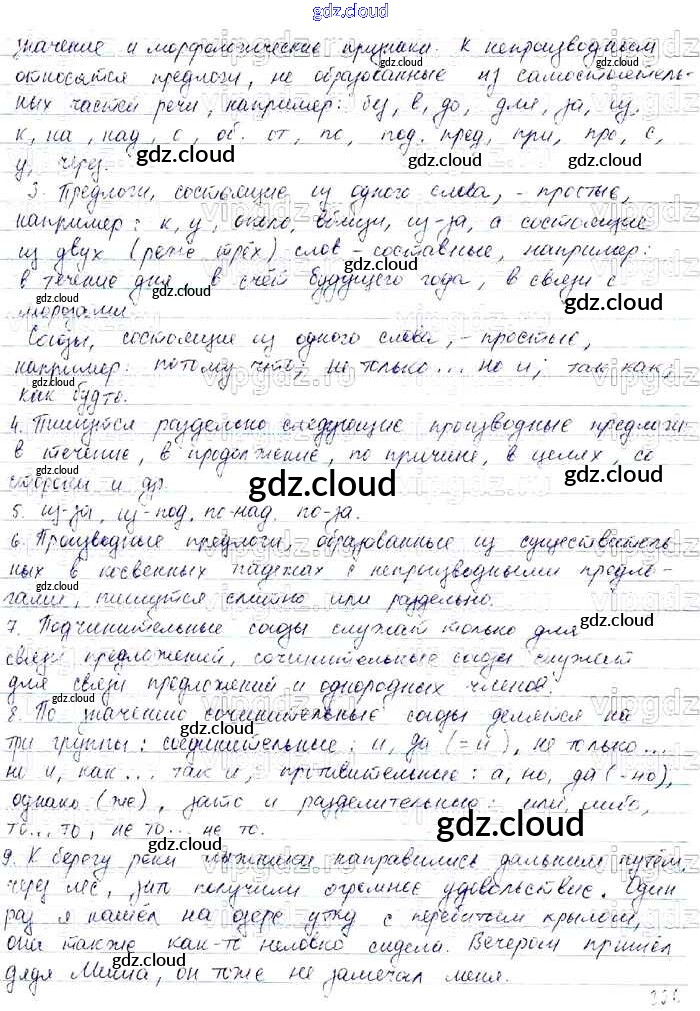 gdz.cloud
значение и морфологические признаки. К непроизводным
относятся предлоги, не образованные из самостоятель-
ных частей речи, например: без, в, до, для, за, из,
к, на, над, о, об, от, по, под, пред, при, про, с,
у, через.
3. Предлоги, состоящие из одного слова, - простые,
например: к, у, около, вблизи, из-за, а состоящие
из двух (реже трёх) слов - составные, например:
в течение дня, в счёт будущего года, в связи с
морозами.
Союзы, состоящие из одного слова, - простые,
например: потому что; не только... но и; так как;
как будто.
4. Пишутся раздельно следующие производные предлоги:
в течение, в продолжение, по причине, в целях, со
стороны и др.
5. из-за, из-под, по-над, по-за.
6. Производные предлоги, образованные из существитель-
ных в косвенных падежах с непроизводными предло-
гами, пишутся слитно или раздельно.
7. Подчинительные союзы служат только для
связи предложений, сочинительные союзы служат
для связи предложений и однородных членов.
8. По значению сочинительные союзы делятся на
три группы: соединительные: и, да (=и), не только...
но и, как... так и, противительные: а, но, да (-но),
однако (же), зато и разделительные: или, либо,
то...то, не то... не то.
9. К берегу реки лыжники направились дальним путём,
через лес, зато получили огромное удовольствие. Один
раз я нашёл на озере утку с перебитым крылом,
она также как-то неловко сидела. Вечером пришёл
дядя Миша, он тоже не замечал меня.